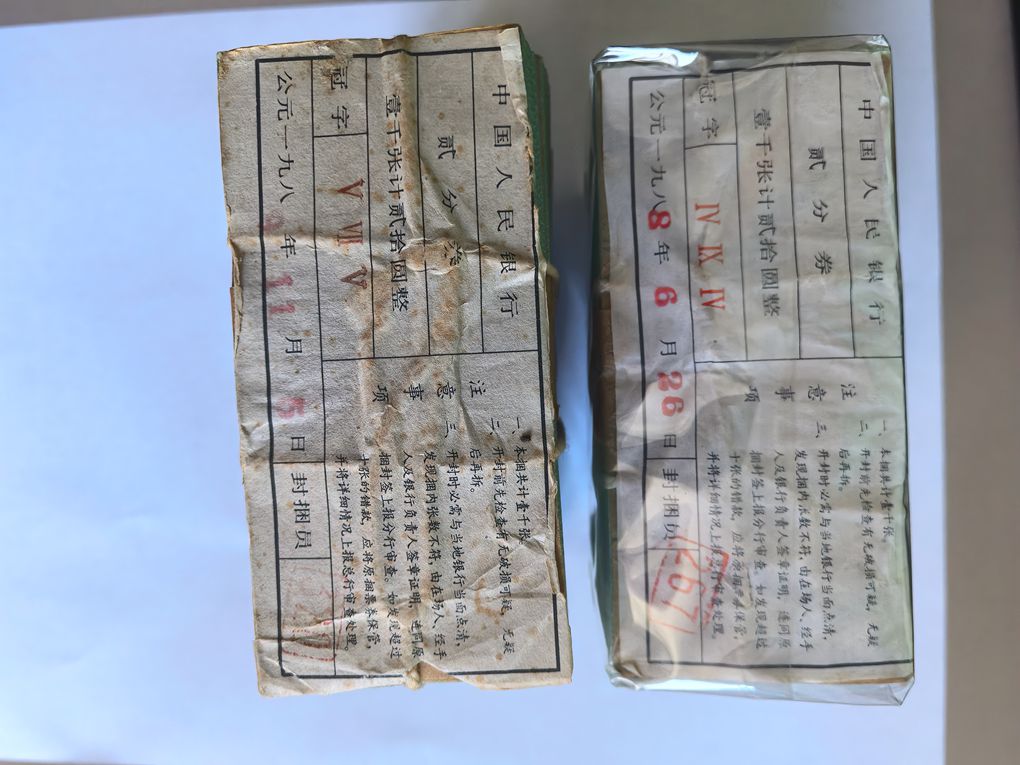 中国人民银行
贰分券
壹千张计贰拾圆整
冠字 V VII V
公元一九八 年 11 月 5 日 封捆员
注意事项
一、本捆共计壹千张。
二、开封前先检查有无破损可疑，无疑
后再拆。
三、开封时必需与当地银行当面点清，
发现捆内张数不符，由在场人、经手
人及银行负责人签章证明，连同原
捆封签上报分行审查。如发现超过
十张的错款，应将原捆票券保管，
并将详细情况上报总行审查处理。
中国人民银行
贰分券
壹千张计贰拾圆整
冠字 IV IX IV
公元一九八8年 6 月 26 日 封捆员
注意事项
一、本捆共计壹千张。
二、开封前先检查有无破损可疑，无疑
后再拆。
三、开封时必需与当地银行当面点清，
发现捆内张数不符，由在场人、经手
人及银行负责人签章证明，连同原
捆封签上报分行审查。如发现超过
十张的错款，应将原捆票券保管，
并将详细情况上报总行审查处理。